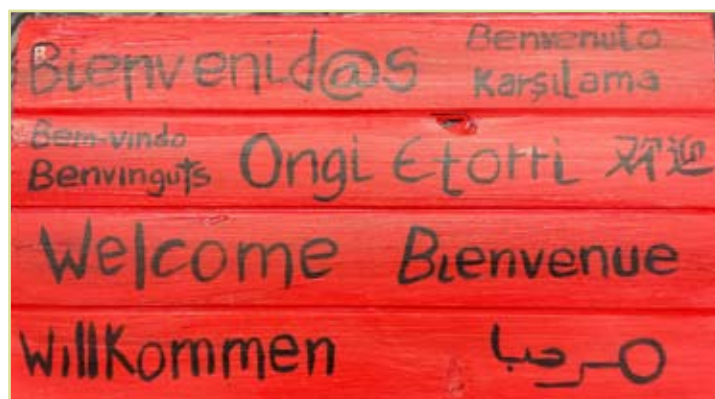 Bienvenid@s
Benvenuto
Karşılama
Bem-vindo
Benvinguts
Ongi Etorri
欢迎
Welcome
Bienvenue
Willkommen
مرحبا